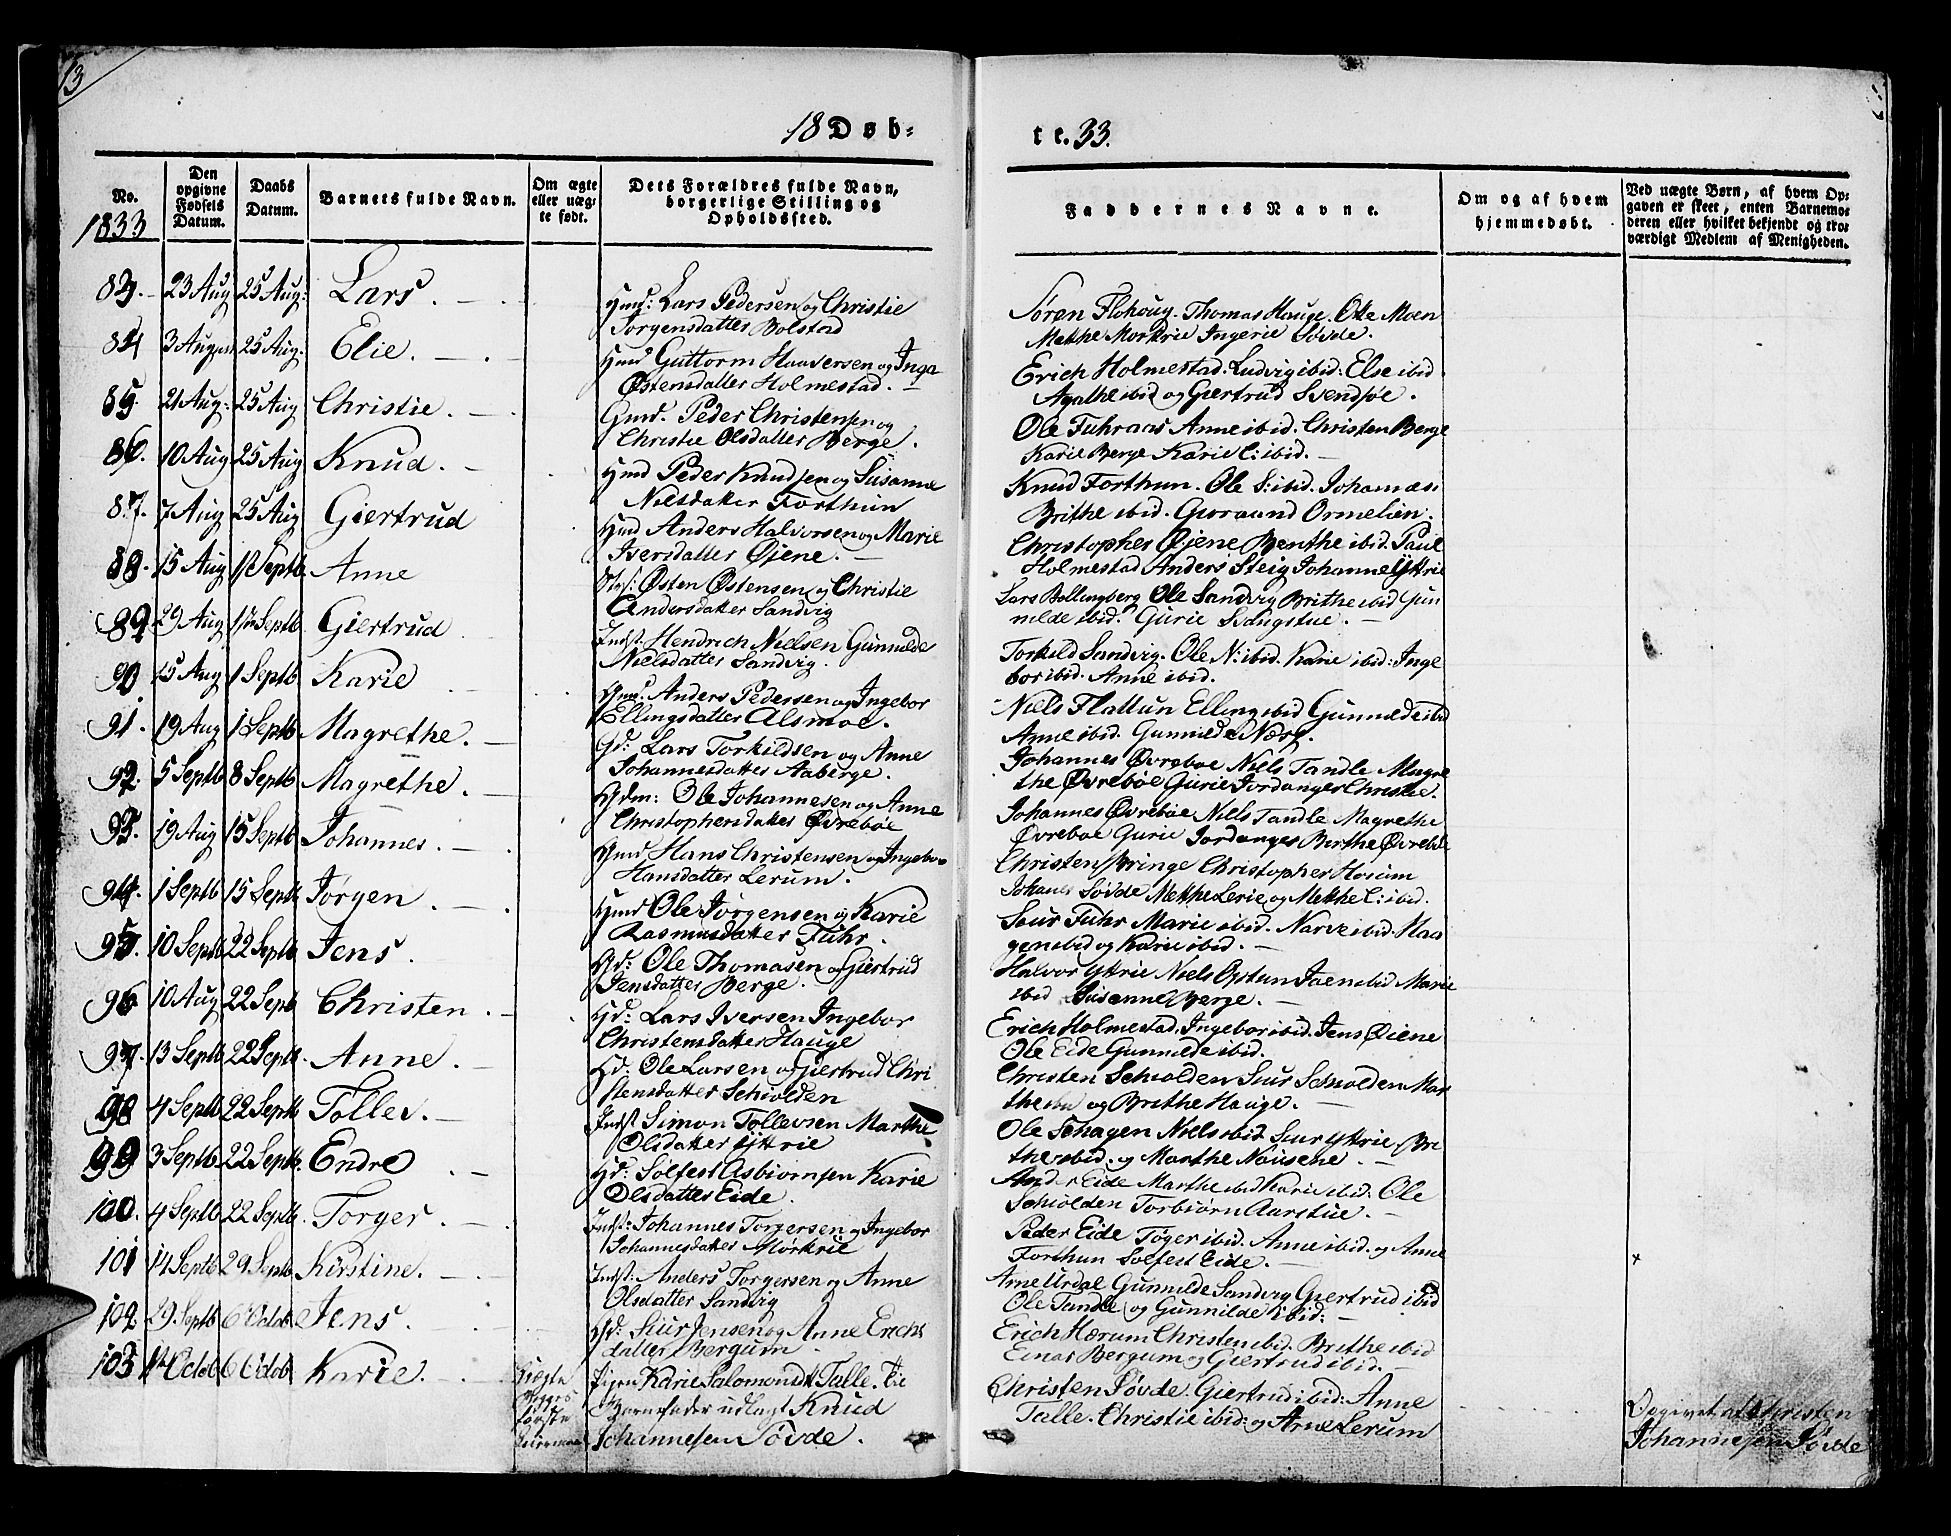 13
18 Døb-
te. 33.
No.
1833
Den
opgivne
Fødsels
Datum.
Daabs
Datum.
Barnets fulde Navn.
Om ægte
eller uæg-
te født.
Dets Forældres fulde Navn,
borgerlige Stilling og
Opholdssted.
Faddernes Navne.
Om og af hvem
hjemmedøbt.
Ved uægte Børn, af hvem Op-
gaven er skeet, enten Barnemo-
deren eller hvilket bekjendt og tro-
værdigt Medlem af Menigheden.
83. 23 Aug 25 Aug: Lars.
Hmd: Lars Pedersen og Christie
Torgensdatter Bolstad
Søren Flohoug. Thomas Hauge. Ole Moen
Mekhe Morkrie Ingerie Søvde.
84 3 Aug 25 Aug. Elie.
Hmd Guttorm Haaversen og Inga
Østensdatter Holmestad.
Erich Holmestad. Ludvig ibid: Else ibid.
Agathe ibid og Giertrud Svendsøe.
85. 21 Aug: 25 Aug Christie.
Gmd. Peder Christensen og
Christie Olsdatter Berge.
Ole Fuhraas Anne ibid. Christen Berge
Karie Berge Karie C: ibid.
86. 10 Aug 25 Aug Knud.
Hmd Peder Knudsen og Susanne
Nielsdatter Forthun
Knud Forthun. Ole S: ibid. Johannes
Brithe ibid. Guraand Ormelien.
87. 7 Aug 25 Aug Giertrud
Hmd Anders Halvorsen og Marie
Iversdatter Øiene.
Christopher Øiene Benthe ibid. Paul
Holmestad Anders Steig Johanne Yttrie
88. 15 Aug 1 Septb Anne
Østen Østensen og Christie
Andersdatter Sandvig
Lars Bollingberg Ole Sandvig Brithe ibid Gun
nilde ibid. Gurie Svangstue.
89 29 Aug 1 Septb Giertrud
Indst: Hendrich Nielsen Gunnilde
Nielsdatter Sandvig.
Torkild Sandvig. Ole N: ibid. Karie ibid: Inge
bor ibid. Anne ibid.
90 15 Aug 1 Septb Karie
Hmd: Anders Pedersen og Ingebor
Ellingsdatter Alsmoe.
Niels Flattun Elling ibid Gunnilde ibid
Anne ibid. Gunnilde Næss.
91. 19 Aug 1 Septb Magrethe.
Gd: Lars Torkildsen og Anne
Johannesdatter Aaberge.
Johannes Øvrebøe Niels Tandle Magre
the Øvrebøe Gurie Jordanger Christie.
92. 5 Septb 8 Septb Magrethe.
Gdm: Ole Johannesen og Anne
Christophersdatter Øvrebøe
Johannes Øvrebøe Niels Tandle Magrethe
Øvrebøe Gurie Jordanger Berthe Øvrebøe
93. 19 Aug 15 Septb Johannes.
Hmd Hans Christensen og Ingebor
Hansdatter Lerum.
Christen Bringe Christopher Hoium
Johanes Søvde Mekhe Lerie og Mekhe C: ibid.
94. 1 Septb 15 Septb Jørgen.
Hmd Ole Jørgensen og Karie
Rasmusdatter Fuhr.
Siur Fuhr Marie ibid. Narve ibid. Haa
gen ibid og Karie ibid.
95. 10 Septb 22 Septb Jens.
Gd: Ole Thomasen og Giertrud
Jensdatter Berge.
Halvor Yttrie Niels Opstun Jaen ibid Marie
ibid Susanne Berge.
96 10 Aug 22 Septb Christen.
Gd: Lars Iversen Ingebor
Christensdatter Hauge
Erich Holmestad. Ingebor ibid. Jens Øiene
Ole Eide Gunnilde ibid.
97. 13 Septb 22 Septb. Anne.
Gd: Ole Larsen og Giertrud Chri
stensdatter Schiolden
Christen Schiolden Siur Schiolden Mar
the ibid og Brithe Hauge.
98 4 Septb 22 Septb Tollev.
Indst Simon Tollevsen Marthe
Olsdatter Yttrie
Ole Schagen Niels ibid Siur Yttrie. Bri
the ibid. og Marthe Nousene.
99 3 Septb 22 Septb. Endre
Gd: Solfest Asbiornsen Karie
Olsdatter Eide.
Ander Eide Marthe ibid Karie ibid: Ole
Schiolden Torbiorn Aarstue.
100. 4 Septb 22 Septb. Torger.
Indst: Johannes Torgersen og Ingebor
Johannesdatter Mørkrie
Peder Eide Tøger ibid. Anne ibid. og Anne
Forthun Solfest Eide.
101 14 Septb 29 Septb Kirstine.
Indst: Anders Torgersen og Anne
Olsdatter Sandvig
Arne Urdal Gunnilde Sandvig Giertrud ibid
Ole Tandle og Gunnilde ibid:
102 29 Septb 6 Octob. Jens.
Gd: Siur Jensen og Anne Erichs
datter Bergum.
Erich Hærum Christen ibid. Brithe ibid
Einar Bergum og Giertrud ibid.
103 Octob 6 Octob. Karie.
Uægte
begges
første
Leiermaal
Pigen Karie Salomonsdt Talle. Til
Barnefader udlagt Knud
Johannesen Søvde.
Christen Søvde. Giertrud ibid: Anne
Talle. Christie ibid: og Arne Lerum
Opgivet af Christen
Johannesen Søvde